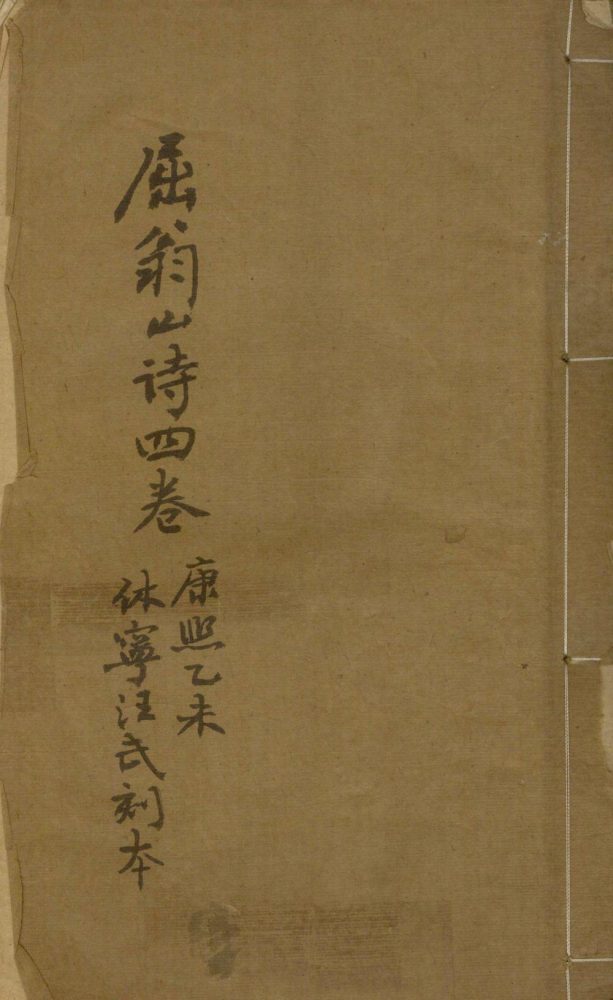 屈翁山诗四卷
康熙乙未
休寧汪氏刻本